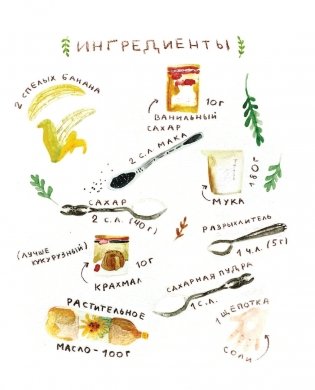 ИНГРЕДИЕНТЫ
2 СПЕЛЫХ БАНАНА
10г
ВАНИЛЬНЫЙ
САХАР
2 С.Л МАКА
180г
МУКА
САХАР
2 С.Л. (40г)
РАЗРЫХЛИТЕЛЬ
1 Ч.Л. (5г)
(ЛУЧШЕ
КУКУРУЗНЫЙ)
10г
КРАХМАЛ
САХАРНАЯ ПУДРА
1 С.Л.
РАСТИТЕЛЬНОЕ
МАСЛО - 100г
1 ЩЕПОТКА
СОЛИ